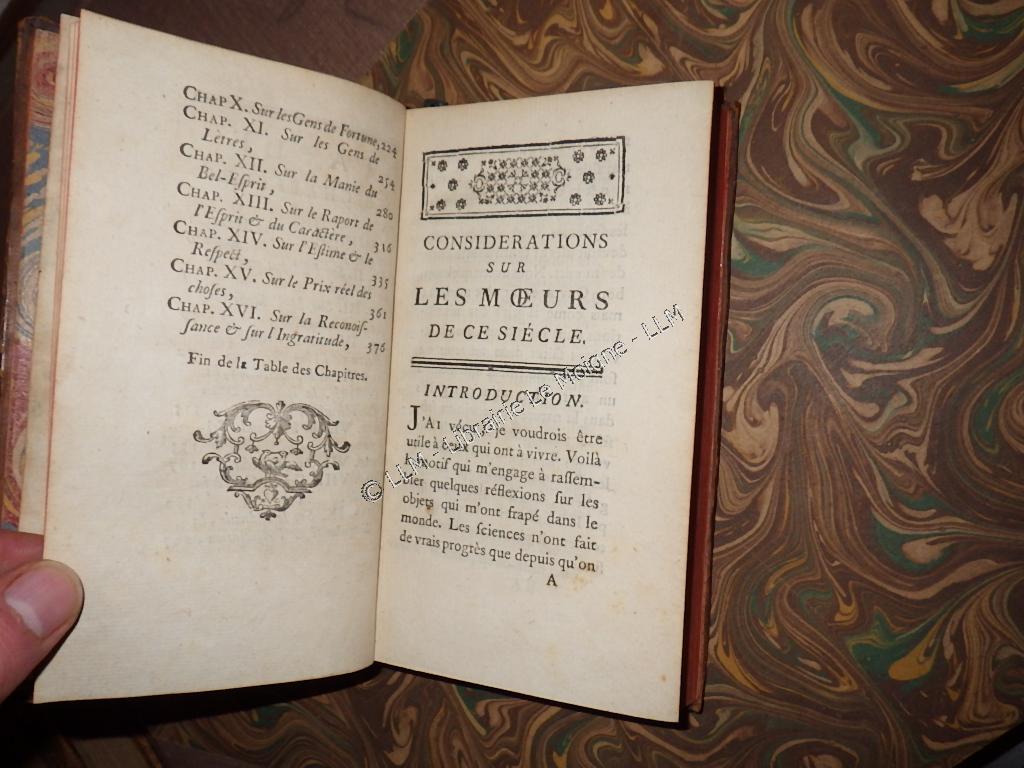 CHAP X. Sur les Gens de Fortune, 224
CHAP. XI. Sur les Gens de
Lètres, 254
CHAP. XII. Sur la Manie du
Bel-Esprit, 280
CHAP. XIII. Sur le Raport de
l'Esprit & du Caractère, 316
CHAP. XIV. Sur l'Estime & le
Respect, 335
CHAP. XV. Sur le Prix réel des
choses, 361
CHAP. XVI. Sur la Reconoiſ-
ſance & ſur l'Ingratitude, 376
Fin de la Table des Chapitres.
CONSIDERATIONS
SUR
LES MŒURS
DE CE SIÉCLE.
INTRODUCTION.
J'AI vécu, je voudrois être
utile à ceux qui ont à vivre. Voilà
le motif qui m'engage à raſſem-
bler quelques réflexions ſur les
objets qui m'ont frapé dans le
monde. Les ſciences n'ont fait
de vrais progrès que depuis qu'on
A
© LLM - Librairie Le Moigne - LLM